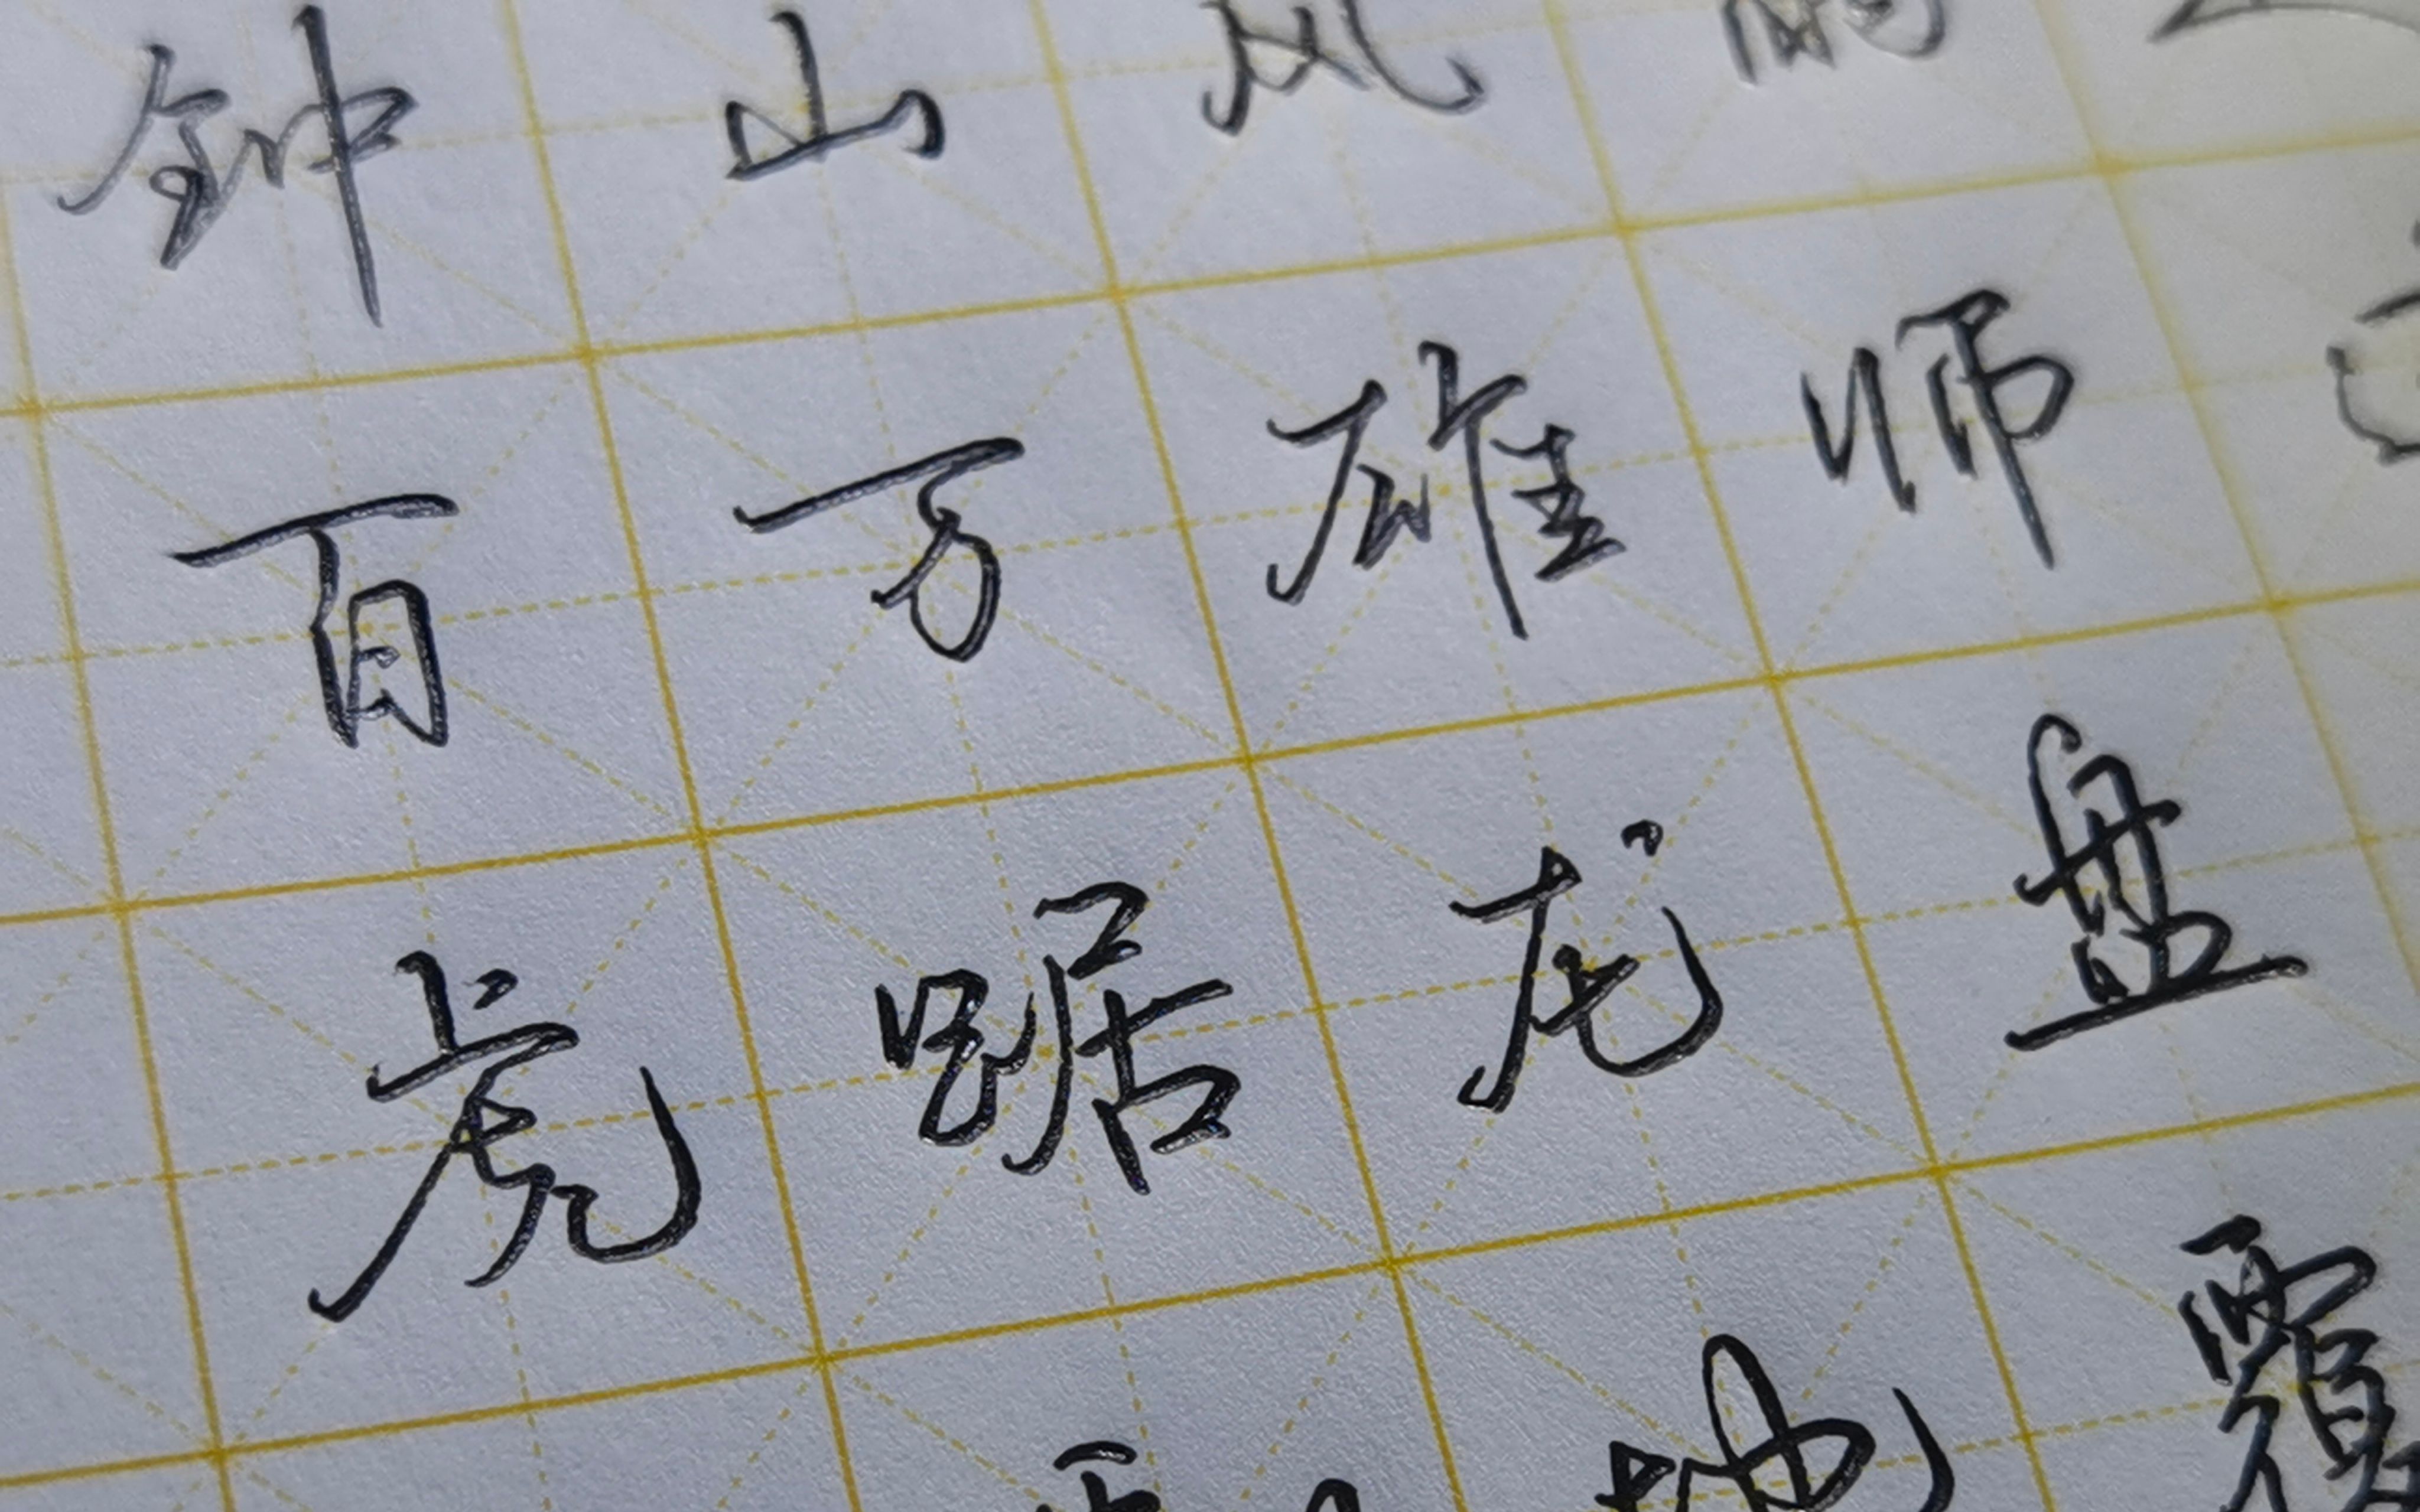 钟山风雨
百万雄师过
虎踞龙盘
地覆